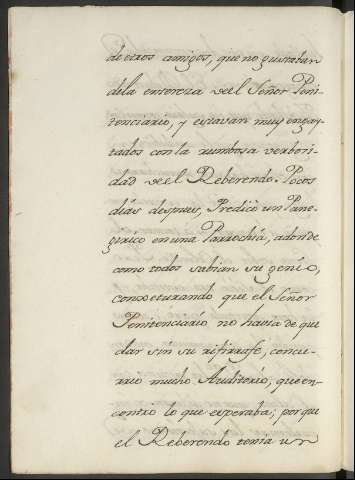 de otros amigos, que no gustaban
dela entereza del Señor Peni-
tenciario, y estavan muy engay-
tados con la rumbosa verbori-
dad del Reberendo. Pocos
días despues, Predicò un Pane-
girico en una Parrochia, adonde
como todos sabian su genio,
conxeturando que el Señor
Penitenciario no havia de que
dar sin su rifirrafe, concu-
rrio mucho Auditorio, que en-
contro lo que esperaba; por que
el Reberendo tenia un